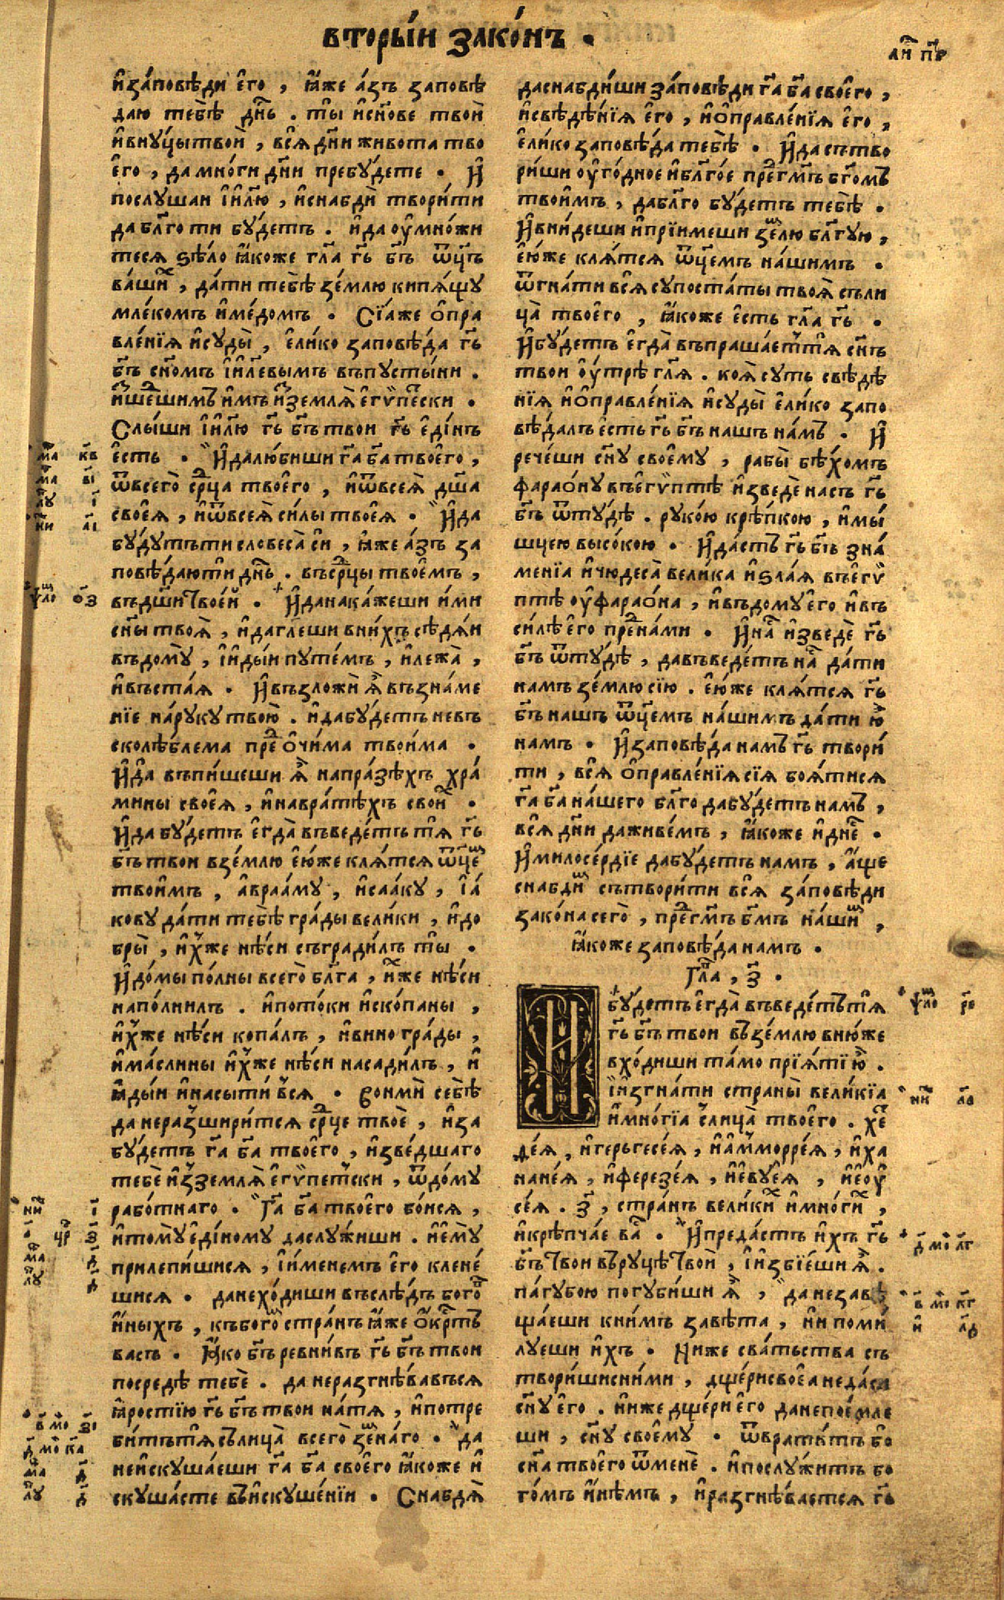 вторы́и зако́нъ .
и҆за́повѣди е҆го̀ , ꙗ҆́же а҆́зъ заповѣ
даю тебѣ̀ дн҃ь . ты̀ и҆сн҃ове твоѝ
и҆вну́цытвоѝ , всѧ̀ дн҃и живота тво
е҆го̀ , да мно́ги дн҃и пребу́дете . И҆
послу́шаи і҆и҃лю , и҆снабдѝ твори́ти
да бл҃го ти бу́детъ . и҆да оу҆мно́жи
тесѧ ѕѣ́ло ꙗ҆́коже гл҃а гь҃ бъ҃ ѿц҃ъ
ва́ши , да́ти тебѣ̀ зе́млю кипѧ́щу
млеко́мъ и҆ме́домъ . Сїѧ́же о҆пра
вле́нїѧ и҆суды̀ , е҆ли́ко заповѣ́да гь҃
бъ҃ сн҃омъ і҆и҃левымъ въпусты́ни .
и҆ше́дшимъ и҆мъ и҆землѧ̀ е҆гѵ́пески .
Слы́ши і҆и҃лю гь҃ бъ҃ твои гь҃ е҆ди́нъ
е҆́сть . И҆далю́биши га҃ ба҃ твое҆го̀ ,
ѿвсего̀ ср҃ца твоего̀ , и҆ѿвсеѧ̀ дш҃а
своеѧ̀ , и҆ѿвсеѧ̀ си́лы твоеѧ̀ . И҆да
бу́дутъти словеса̀ сѝ , ꙗ҆́же а҆́зъ за
повѣ́даюти дн҃ь . въср҃цы твое҆мъ ,
въдш҃и твое́й . И҆данака́жеши и҆́ми
сн҃ы твоѧ̀ , и҆даглеши вни́хъ сѣдѧ́и
въдому̀ , і҆и҆ды́и путе́мъ , и҆лежа̀ ,
и҆въста́ѧ . И҆възложѝ ѧ҆̀ възна́ме
нїе на́руку твою̀ . и҆дабу́детъ невъ
сколѣ́блема пре о҆чи́ма твои́ма .
И҆да въпи́шеши ѧ҆̀ напра́зѣхъ хра́
мины своеѧ̀ , и҆навра́тѣхъ свои .
И҆да бу́детъ е҆гда̀ въведе́тъ тѧ̀ гь҃
бъ҃ твои взе́млю е҆ю́же клѧ́тсѧ ѿце
твои́мъ , а҆враа́му , и҆саа́ку , і҆а́
кову да́ти тебѣ̀ гра́ды вели́ки , и҆до
бры̀ , и҆́хже нѣ́си съгради́лъ ты̀ .
И҆до́мы по́лны всего̀ бл҃га , и҆́хже нѣ́си
напо́лнилъ . и҆пото́ки и҆ско́паны ,
и҆́хже нѣ́си копа́лъ , и҆вино гра́ды ,
и҆ма́слины и҆́хже нѣ́си насади́лъ , и҆
ꙗ҆ды́и и҆насы́ти всѧ . воимѝ себѣ̀
да неразшири́тсѧ ср҃це твоѐ , и҆за
бу́детъ га҃ ба҃ твоего̀ , и҆зве́дшаго
тебѐ и҆зземлѧ̀ е҆гѵ́петски , ѿдо́му
рабо́тнаго . Га҃ ба҃ твоего бо́исѧ ,
и҆тому̀ е҆ди́ному даслу́жиши . и҆е҆му̀
прилепи́шисѧ , і҆и́менемъ е҆го клене́
шисѧ . данехо́диши въслѣ́дъ бого
и҆́ныхъ , къбого стра́нъ ꙗ҆́же о҆́крстъ
васъ . Ꙗ҆́ко бъ҃ ревни́въ гь҃ бъ҃ твои
посредѣ̀ тебѐ . да неразгнѣ́вавъсѧ
ꙗ҆́ростїю гь҃ бъ҃ твои на́тѧ , и҆потре
би́тътѧ съ́лица̀ всего̀ зе́наго . да
неи҆скуша́еши га҃ ба҃ своего̀ ꙗ҆́коже и҆
скуша́сте въи҆скуше́нїи . Снабдѧ̀
даснабди́ши за́повѣди га҃ ба҃ свое҆го ,
и҆свѣдѣ́нїѧ е҆го̀ , и҆о҆правле́нїѧ е҆го̀ ,
е҆ли́ко заповѣ́да тебѣ̀ . И҆да сътво
ри́ши оу҆го́дное и҆бл҃го́е предгм҃ъ бг҃омъ
твои́мъ , дабл҃го бу́детъ тебѣ̀ .
И҆вни́деши и҆прїи́меши зе́лю бл҃гую ,
е҆ю́же клѧ́тсѧ ѿце́мъ на́шимъ .
ѿгна́ти всѧ̀ супоста́ты твоѧ̀ съли
ца̀ твоего̀ , ꙗ҆́коже е҆сть гл҃а гь҃ .
И҆бу́детъ е҆гда̀ въпраша́еттѧ сн҃ъ
твои оу҆трѣ̀ гл҃ѧ . коѧ̀ суть свѣдѣ̀
нїѧ и҆о҆правле́нїѧ и҆суды̀ е҆ли́ко запо
вѣ́далъ е҆сть гь҃ бъ҃ нашъ на́мъ . И҆
рече́ши сн҃у своему̀ , рабы̀ бѣ́хомъ
фарао́ну въе҆гѵ́птѣ и҆зведѐ насъ гь҃
бъ҃ ѿту́дѣ . руко́ю крѣ́пкою , и҆мы̀
шцею высо́кою . И҆да́стъ гь҃ бъ҃ зна́
менїа и҆чюдеса̀ вели́ка и҆ѕла́ѧ въе҆гѵ́
птѣ оу҆фарао́на , и҆въдому̀ е҆го и҆въ
си́лѣ е҆го пренами . И҆на и҆зведѐ гь҃
бъ҃ ѿту́дѣ , давъведе́тъ на да́ти
намъ зе́млю сїю . е҆ю́же клѧ́тсѧ гь҃
бъ҃ нашъ ѿце́мъ на́шимъ да́ти ю҆̀
намъ . И҆заповѣ́да намъ гь҃ твори́
ти , всѧ̀ о҆правле́нїѧ сїѧ боѧ́тисѧ
га҃ ба҃ на́шего бл҃го дабу́детъ намъ ,
всѧ̀ дн҃и даживе́мъ , ꙗ҆́коже и҆дне .
И҆милосе́рдїе дабу́детъ намъ , а҆́ще
снабди сътвори́ти всѧ̀ за́повѣди
зако́на сего̀ , предгм҃ъ бм҃ъ на́ши ,
ꙗ҆́коже заповѣ́да намъ .
Гл҃а , з҃ .
И бу́детъ е҆гда̀ въведе́тътѧ
гь҃ бъ҃ твои въ зе́млю вню́же
вхо́диши та́мо прїѧ́ти ю҆̀ .
и҆згна́ти страны̀ вели́кїа
и҆мно́гїа слица̀ твоего̀ . хе
де́ѧ , и҆герьгесе́ѧ , и҆а҆ммо́рреѧ , и҆ха
нане́ѧ , и҆ферезе́ѧ , и҆е҆вуе́ѧ , и҆е҆оу҆
се́ѧ . з҃ , стра́нъ вели́ки и҆мно́ги ,
и҆крѣпча́е ва . И҆преда́стъ и҆́хъ гь҃
бъ҃ твои въру́цѣ твоѝ , і҆избїе́ши ѧ҆̀ .
па́губою погуби́ши ѧ҆̀ , да незавѣ
ща́еши кни́мъ завѣ́та , ни поми́
луеши и҆́хъ . Ниже сва́тьства съ
твори́шисни́ми , дще́рисвоеѧ недаси
сн҃у е҆го . ниже дще́ри е҆го данепое́мле
ши , сн҃у своему̀ . ѿврати́тъ бо
сн҃а твоего ѿменѐ . и҆послу́житъ бо
го́мъ и҆нѣ́мъ , и҆разгнѣ́ваетсѧ гь҃